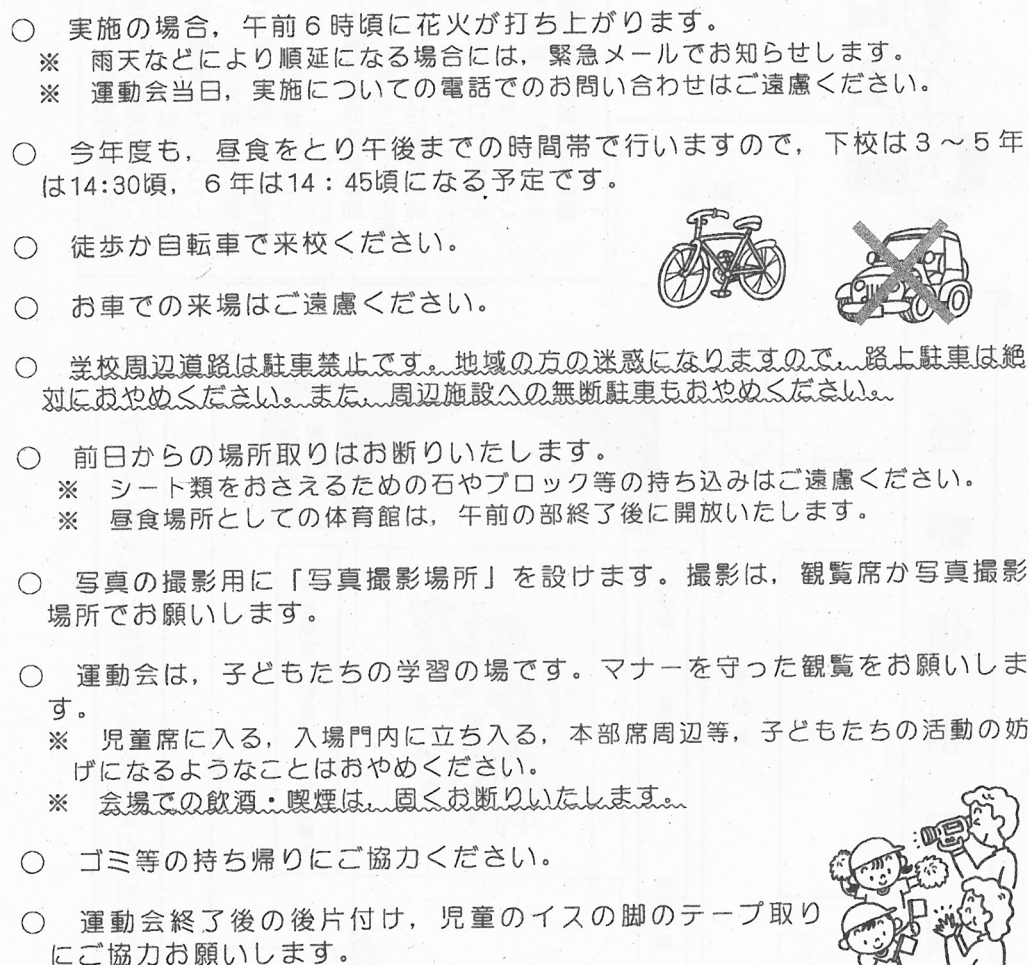 ○　実施の場合，午前６時頃に花火が打ち上がります。
※　雨天などにより順延になる場合には，緊急メールでお知らせします。
※　運動会当日，実施についての電話でのお問い合わせはご遠慮ください。
○　今年度も，昼食をとり午後までの時間帯で行いますので，下校は３～５年
は14:30頃，６年は14：45頃になる予定です。
○　徒歩か自転車で来校ください。
○　お車での来場はご遠慮ください。
○　学校周辺道路は駐車禁止です。地域の方の迷惑になりますので，路上駐車は絶
対におやめください。また，周辺施設への無断駐車もおやめください。
○　前日からの場所取りはお断りいたします。
※　シート類をおさえるための石やブロック等の持ち込みはご遠慮ください。
※　昼食場所としての体育館は，午前の部終了後に開放いたします。
○　写真の撮影用に「写真撮影場所」を設けます。撮影は，観覧席か写真撮影
場所でお願いします。
○　運動会は，子どもたちの学習の場です。マナーを守った観覧をお願いしま
す。
※　児童席に入る，入場門内に立ち入る，本部席周辺等，子どもたちの活動の妨
げになるようなことはおやめください。
※　会場での飲酒・喫煙は，固くお断りいたします。
○　ゴミ等の持ち帰りにご協力ください。
○　運動会終了後の後片付け，児童のイスの脚のテープ取り
にご協力お願いします。